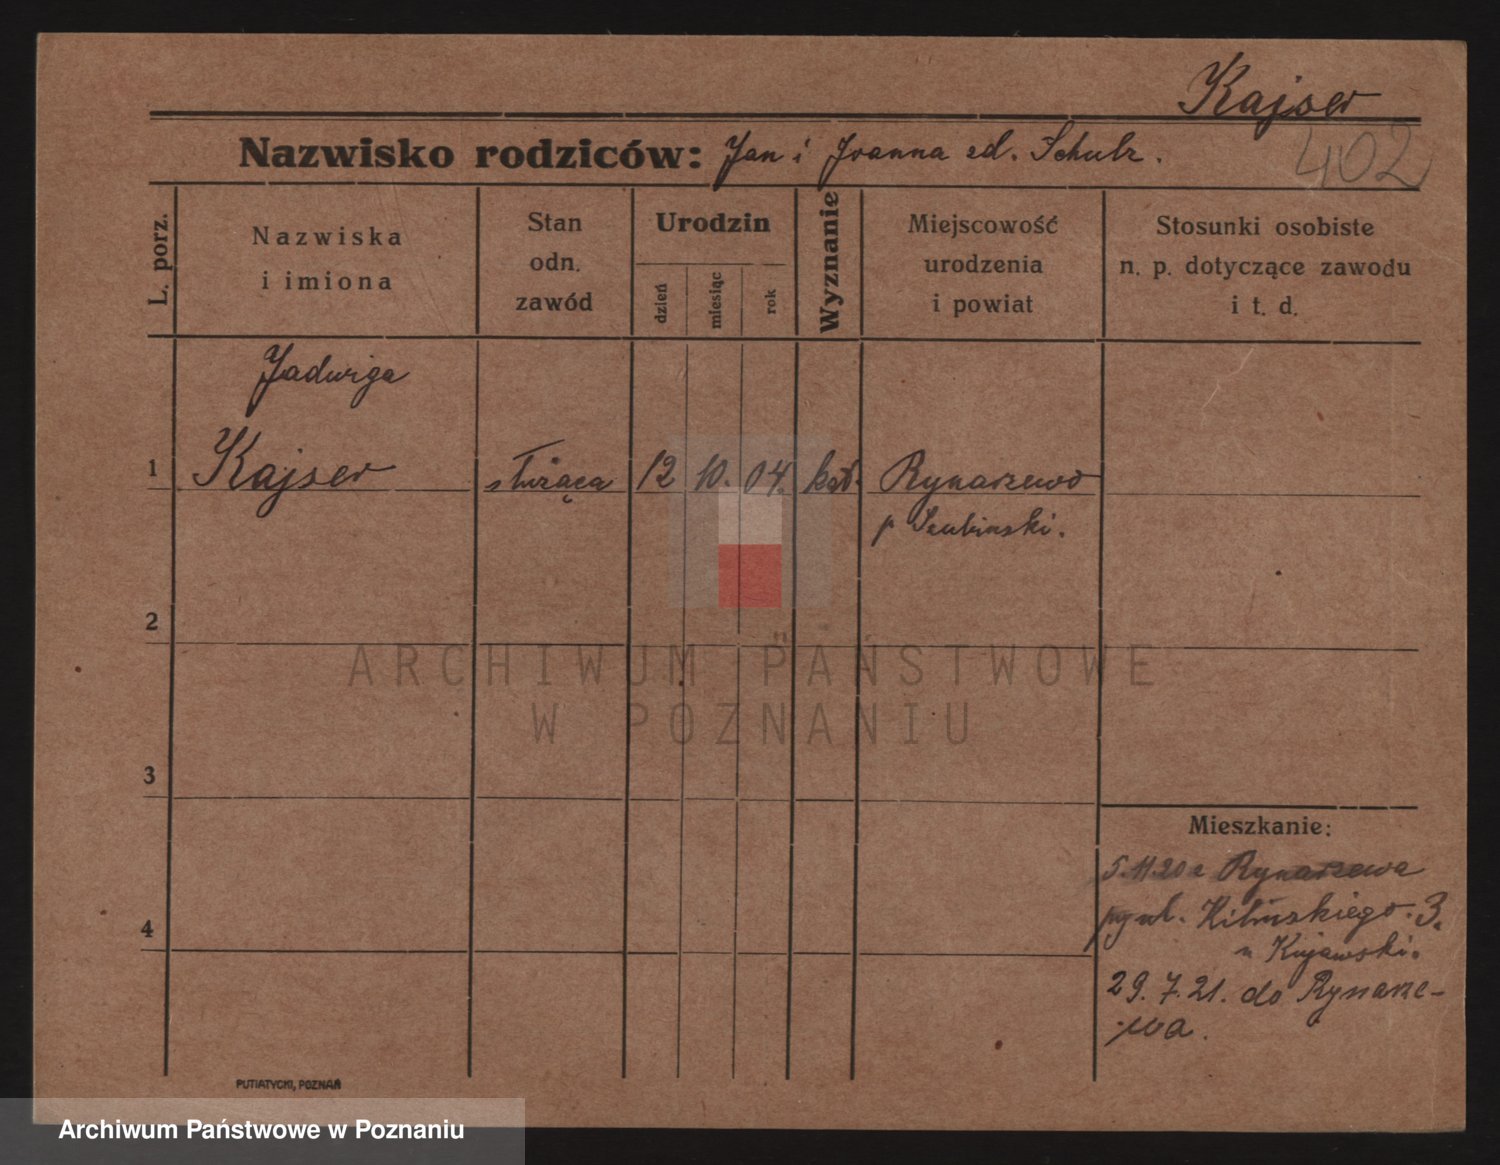 Kajser
402
Nazwisko rodziców: Jan i Joanna zd. Schulz.
L. porz.
Nazwiska
i imiona
Stan
odn.
zawód
Urodzin
dzień
miesiąc
rok
Wyznanie
Miejscowość
urodzenia
i powiat
Stosunki osobiste
n. p. dotyczące zawodu
i t. d.
Jadwiga
1 Kajser służąca 12 10. 04. kat. Rynarzewo
p Szubinski.
2
ARCHIWUM PAŃSTWOWE
W POZNANIU
3
Mieszkanie:
5.11.20 z Rynarzewa
ul. Kilińskiego 3.
u Kujawski.
4
29.7.21. do Rynarze-
wa.
PUTIATYCKI, POZNAŃ
Archiwum Państwowe w Poznaniu